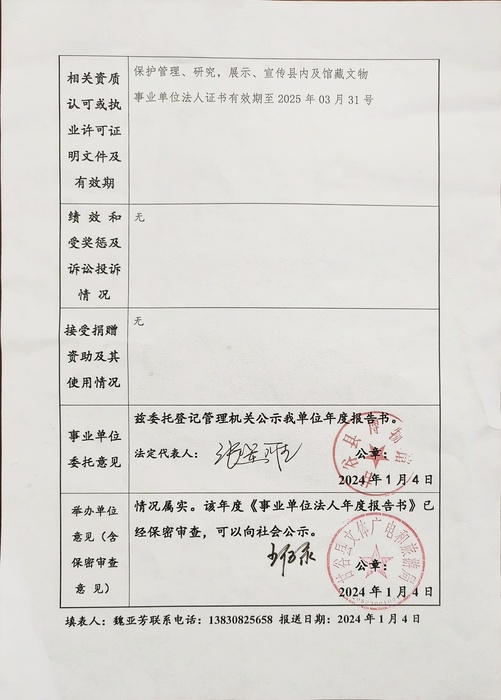 相关资质
认可或执
业许可证
明文件及
有效期
保护管理、研究，展示、宣传县内及馆藏文物
事业单位法人证书有效期至 2025 年 03 月 31 号
绩效和
受奖惩及
诉讼投诉
情况
无
接受捐赠
资助及其
使用情况
无
事业单位
委托意见
兹委托登记管理机关公示我单位年度报告书。
法定代表人：
公章：
2024 年 1 月 4 日
举办单位
意见（含
保密审查
意见）
情况属实。该年度《事业单位法人年度报告书》已
经保密审查，可以向社会公示。
古谷县文体广电和旅游局
公章：
2024 年 1 月 4 日
填表人：魏亚芳联系电话：13830825658 报送日期：2024 年 1 月 4 日